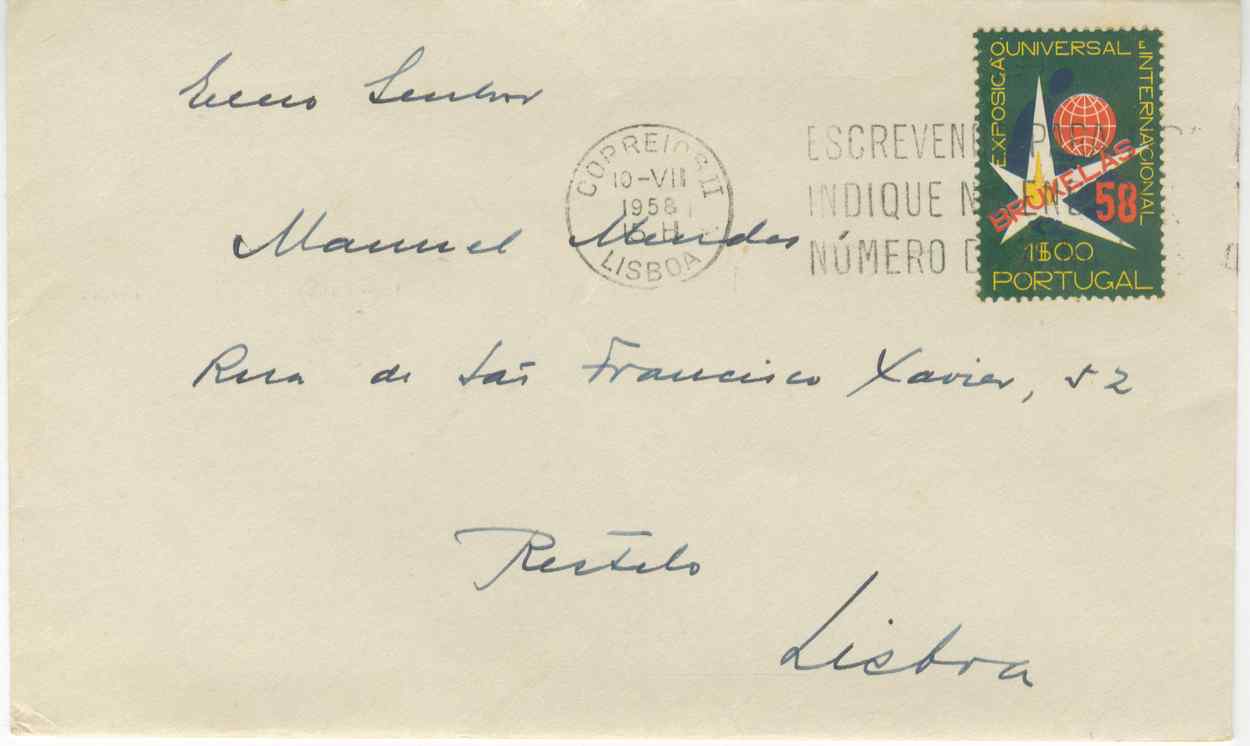 Exmo Senhor
Manuel Mendes
Rua de São Francisco Xavier, 52
Restelo
Lisboa
CORREIOS II
10-VII
1958
LISBOA
ESCREVEN
INDIQUE N
NÚMERO D
EXPOSIÇÃO UNIVERSAL E INTERNACIONAL
BRUXELAS
58
1$00
PORTUGAL